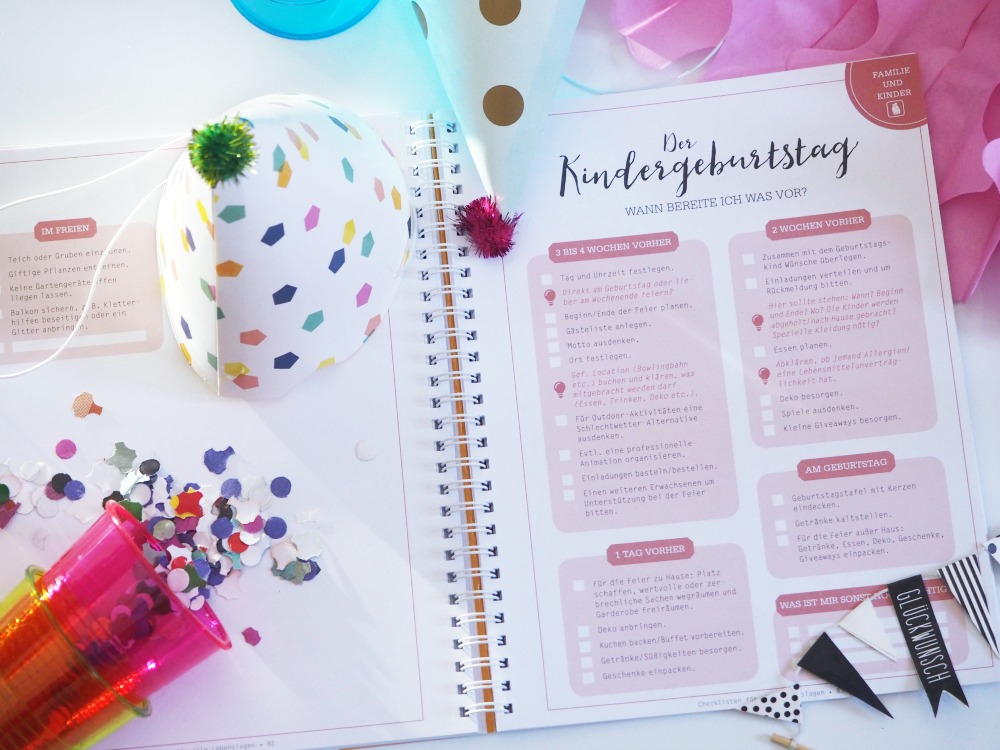 IM FREIEN
Teich oder Gruben einzäunen.
Giftige Pflanzen entfernen.
Keine Gartengeräte
liegen lassen.
Balkon sichern, z.B. Kletter-
hilfen beseitigen oder ein
Gitter anbringen.
FAMILIE
UND
KINDER
Der
Kindergeburtstag
WANN BEREITE ICH WAS VOR?
3 BIS 4 WOCHEN VORHER
Tag und Uhrzeit festlegen.
Direkt am Geburtstag oder lie-
ber am Wochenende feiern?
Beginn/Ende der Feier planen.
Gästeliste anlegen.
Motto ausdenken.
Ort festlegen.
Ggf. Location (Bowlingbahn
etc.) buchen und klären, was
mitgebracht werden darf
(Essen, Trinken, Deko etc.).
Für Outdoor-Aktivitäten eine
Schlechtwetter-Alternative
ausdenken.
Evtl. eine professionelle
Animation organisieren.
Einladungen basteln/bestellen.
Einen weiteren Erwachsenen um
Unterstützung bei der Feier
bitten.
1 TAG VORHER
Für die Feier zu Hause: Platz
schaffen, wertvolle oder zer-
brechliche Sachen wegräumen und
Garderobe freiräumen.
Deko anbringen.
Kuchen backen/Buffet vorbereiten.
Getränke/Süßigkeiten besorgen.
Geschenke einpacken.
2 WOCHEN VORHER
Zusammen mit dem Geburtstags-
kind Wünsche überlegen.
Einladungen verteilen und um
Rückmeldung bitten.
Hier sollte stehen: Wann? Beginn
und Ende? Wo? Die Kinder werden
abgeholt/nach Hause gebracht?
Spezielle Kleidung nötig?
Essen planen.
Abklären, ob jemand Allergien/
eine Lebensmittelunverträg-
lichkeit hat.
Deko besorgen.
Spiele ausdenken.
Kleine Giveaways besorgen.
AM GEBURTSTAG
Geburtstagstafel mit Kerzen
eindecken.
Getränke kaltstellen.
Für die Feier außer Haus:
Getränke, Essen, Deko, Geschenke,
Giveaways einpacken.
WAS IST MIR SONST
GLÜCKWUNSCH
Checklisten
lagen
lle Lebenslagen • 82